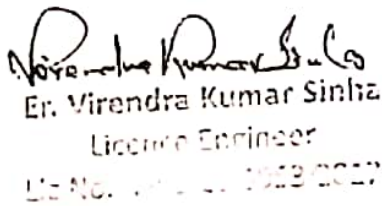 Virendra Kumar Sinha
Er. Virendra Kumar Sinha
Licence Engineer
Lic No.